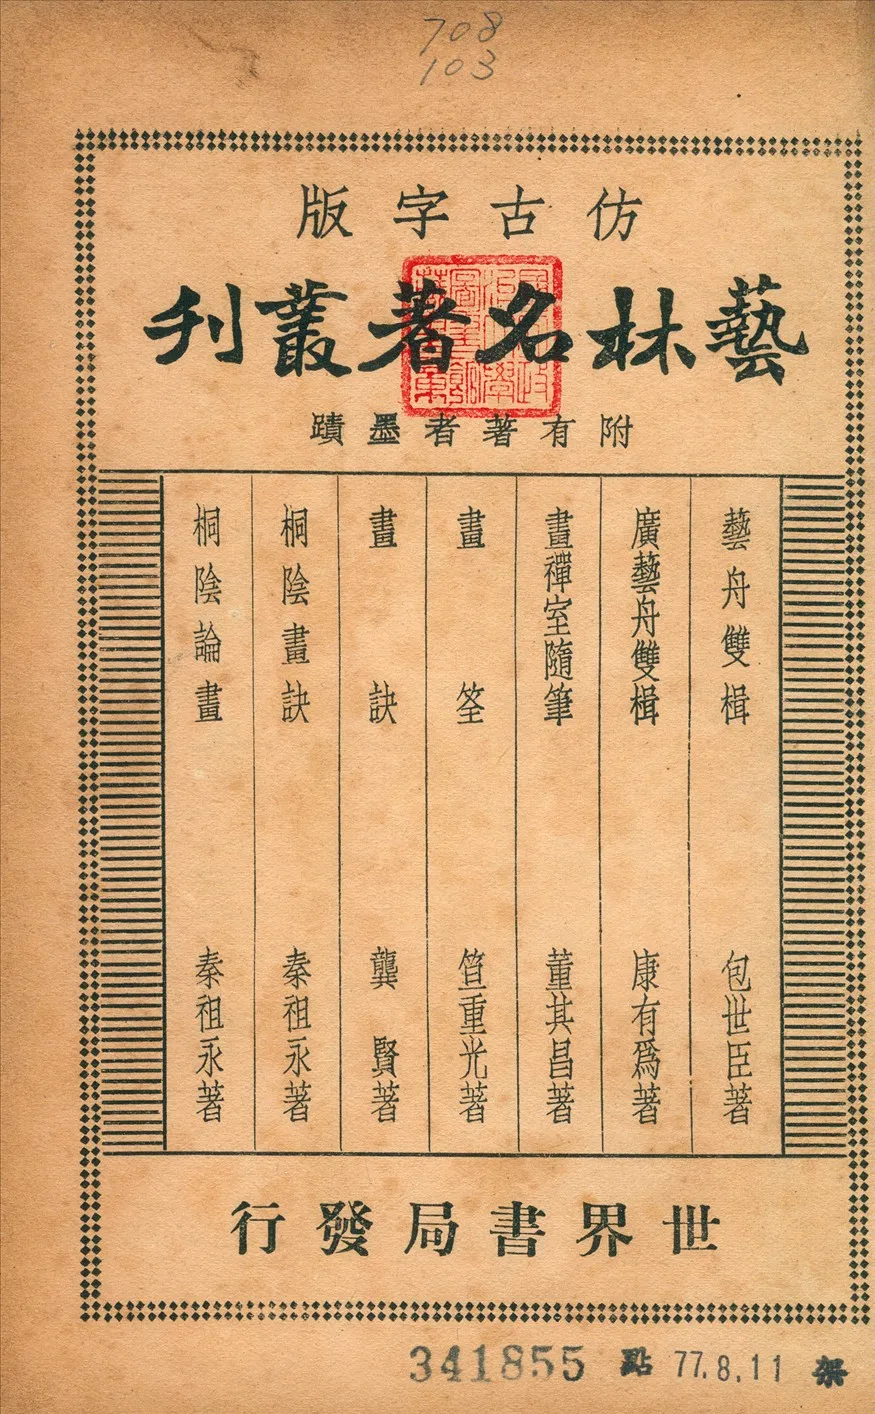 708
103
仿古字版
藝林名著叢刊
附有著者墨蹟
藝舟雙楫 包世臣著
廣藝舟雙楫 康有爲著
畫禪室隨筆 董其昌著
畫筌 笪重光著
畫訣 龔賢著
桐陰畫訣 秦祖永著
桐陰論畫 秦祖永著
世界書局發行
341855 點 77.8.11